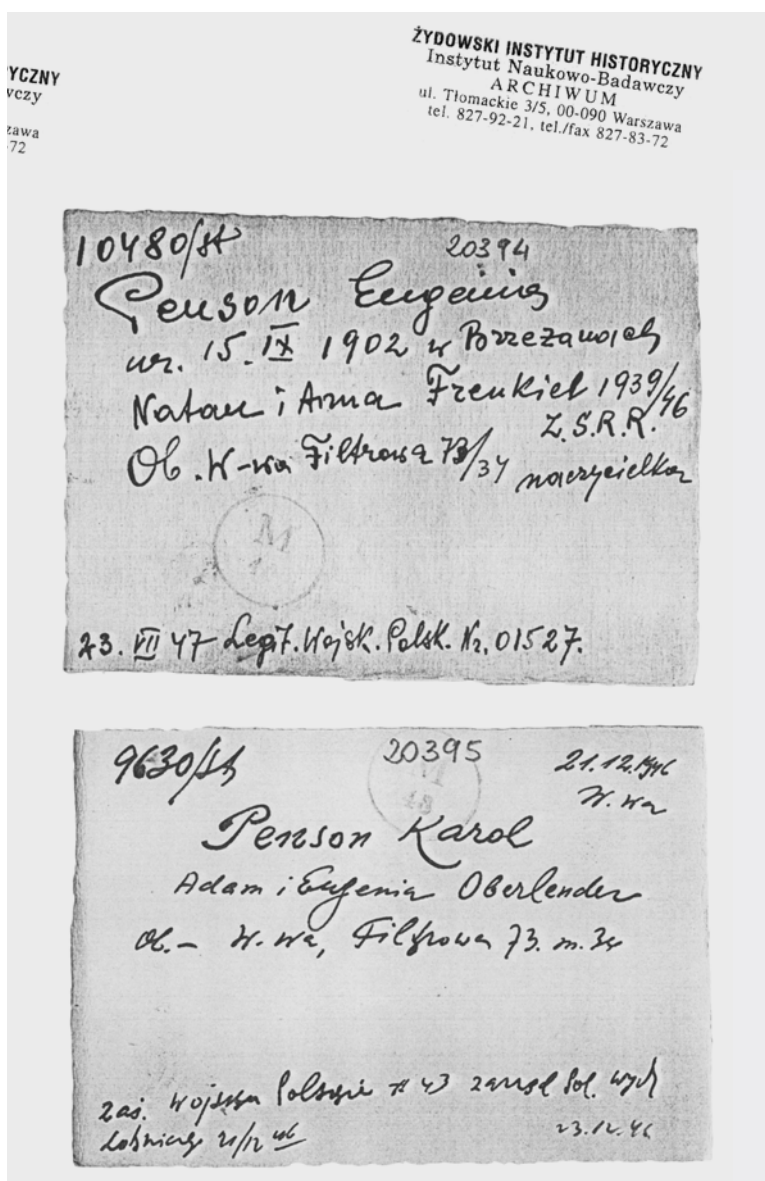 YCZNY
wczy
zawa
-72
ŻYDOWSKI INSTYTUT HISTORYCZNY
Instytut Naukowo-Badawczy
ARCHIWUM
ul. Tłomackie 3/5, 00-090 Warszawa
tel. 827-92-21, tel./fax 827-83-72
10480/st 20394
Penson Eugenia
ur. 15. IX 1902 w Brzeżanach
Natan i Anna Frenkiel 1939/46
Z.S.R.R.
Ob. W-wa Filtrowa 73/34 nauczycielka
M
23. VII 47 Legit. Wojsk. Polsk. Nr. 01527.
9630/st 20395 21.12.1946
W.wa
M
48
Penson Karol
Adam i Eugenia Oberlender
Ob. - W. wa, Filtrowa 73. m. 34
zaś. Wojska Polskie # 43 Pol. Wych
21/12 46 23.12.46